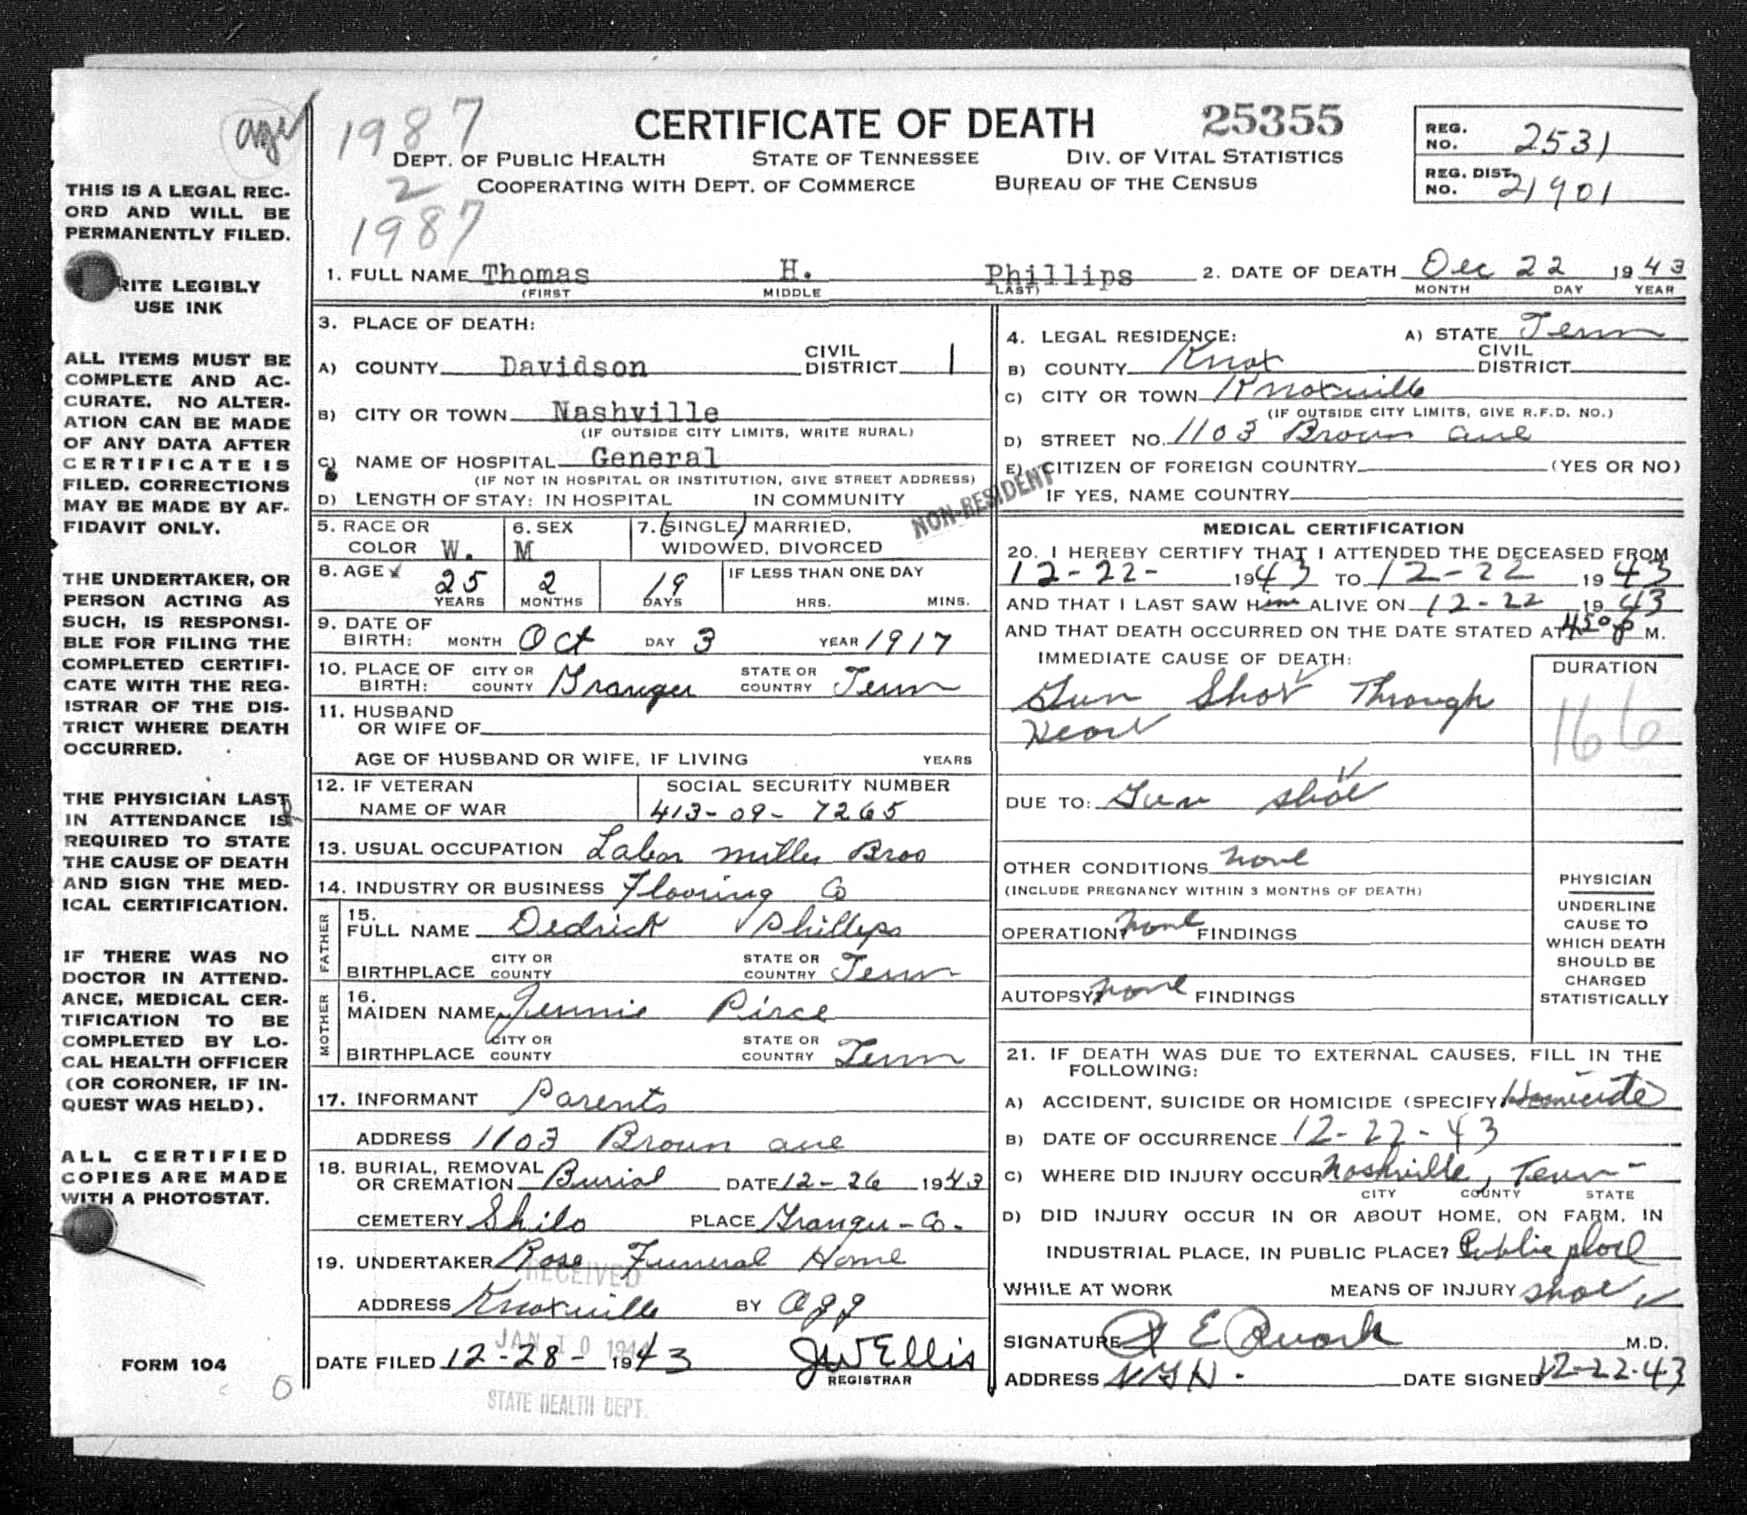 age
1987
2
1987
CERTIFICATE OF DEATH 25355
REG. NO. 2531
REG. DIST. NO. 21901
DEPT. OF PUBLIC HEALTH STATE OF TENNESSEE DIV. OF VITAL STATISTICS
COOPERATING WITH DEPT. OF COMMERCE BUREAU OF THE CENSUS
THIS IS A LEGAL REC-
ORD AND WILL BE
PERMANENTLY FILED.
RITE LEGIBLY
USE INK
ALL ITEMS MUST BE
COMPLETE AND AC-
CURATE. NO ALTER-
ATION CAN BE MADE
OF ANY DATA AFTER
CERTIFICATE IS
FILED. CORRECTIONS
MAY BE MADE BY AF-
FIDAVIT ONLY.
THE UNDERTAKER, OR
PERSON ACTING AS
SUCH, IS RESPONSI-
BLE FOR FILING THE
COMPLETED CERTIFI-
CATE WITH THE REG-
ISTRAR OF THE DIS-
TRICT WHERE DEATH
OCCURRED.
THE PHYSICIAN LAST
IN ATTENDANCE IS
REQUIRED TO STATE
THE CAUSE OF DEATH
AND SIGN THE MED-
ICAL CERTIFICATION.
IF THERE WAS NO
DOCTOR IN ATTEND-
ANCE, MEDICAL CER-
TIFICATION TO BE
COMPLETED BY LO-
CAL HEALTH OFFICER
(OR CORONER, IF IN-
QUEST WAS HELD).
ALL CERTIFIED
COPIES ARE MADE
WITH A PHOTOSTAT.
FORM 104
1. FULL NAME Thomas H. Phillips 2. DATE OF DEATH Dec 22 1943
(FIRST MIDDLE LAST) MONTH DAY YEAR
3. PLACE OF DEATH:
A) COUNTY Davidson CIVIL DISTRICT 1
B) CITY OR TOWN Nashville
(IF OUTSIDE CITY LIMITS, WRITE RURAL)
C) NAME OF HOSPITAL General
(IF NOT IN HOSPITAL OR INSTITUTION, GIVE STREET ADDRESS)
D) LENGTH OF STAY: IN HOSPITAL IN COMMUNITY
NON-RESIDENT
5. RACE OR COLOR W. 6. SEX M 7. (SINGLE) MARRIED, WIDOWED, DIVORCED
8. AGE 25 YEARS 2 MONTHS 19 DAYS IF LESS THAN ONE DAY HRS. MINS.
9. DATE OF BIRTH: MONTH Oct DAY 3 YEAR 1917
10. PLACE OF BIRTH: CITY OR COUNTY Granger STATE OR COUNTRY Tenn
11. HUSBAND OR WIFE OF
AGE OF HUSBAND OR WIFE, IF LIVING YEARS
12. IF VETERAN NAME OF WAR SOCIAL SECURITY NUMBER 413-09-7265
13. USUAL OCCUPATION Labor Miller Bros
14. INDUSTRY OR BUSINESS Flooring Co
FATHER
15. FULL NAME Dedrick Phillips
BIRTHPLACE CITY OR COUNTY STATE OR COUNTRY Tenn
MOTHER
16. MAIDEN NAME Jennie Pirce
BIRTHPLACE CITY OR COUNTY STATE OR COUNTRY Tenn
17. INFORMANT Parents
ADDRESS 1103 Brown ave
18. BURIAL, REMOVAL OR CREMATION Burial DATE 12-26 1943
CEMETERY Shilo PLACE Granger-Co.
19. UNDERTAKER Rose Funeral Home
RECEIVED
ADDRESS Knoxville BY
JAN 10
DATE FILED 12-28- 1943 JW Ellis
REGISTRAR
STATE HEALTH DEPT.
4. LEGAL RESIDENCE: A) STATE Tenn
B) COUNTY Knox CIVIL DISTRICT
C) CITY OR TOWN Knoxville
(IF OUTSIDE CITY LIMITS, GIVE R.F.D. NO.)
D) STREET NO. 1103 Brown ave
E) CITIZEN OF FOREIGN COUNTRY (YES OR NO)
IF YES, NAME COUNTRY
MEDICAL CERTIFICATION
20. I HEREBY CERTIFY THAT I ATTENDED THE DECEASED FROM
12-22- 1943 TO 12-22 1943
AND THAT I LAST SAW Him ALIVE ON 12-22 1943
AND THAT DEATH OCCURRED ON THE DATE STATED AT 450 P M.
IMMEDIATE CAUSE OF DEATH: DURATION
Gun Shot Through
Heart
166
DUE TO: Gun shot
OTHER CONDITIONS none
(INCLUDE PREGNANCY WITHIN 3 MONTHS OF DEATH)
OPERATION? none FINDINGS
AUTOPSY? none FINDINGS
PHYSICIAN
UNDERLINE
CAUSE TO
WHICH DEATH
SHOULD BE
CHARGED
STATISTICALLY
21. IF DEATH WAS DUE TO EXTERNAL CAUSES, FILL IN THE
FOLLOWING:
A) ACCIDENT, SUICIDE OR HOMICIDE (SPECIFY) Homicide
B) DATE OF OCCURRENCE 12-22-43
C) WHERE DID INJURY OCCUR Nashville, Tenn-
CITY COUNTY STATE
D) DID INJURY OCCUR IN OR ABOUT HOME, ON FARM, IN
INDUSTRIAL PLACE, IN PUBLIC PLACE? Public place
WHILE AT WORK MEANS OF INJURY shot
SIGNATURE M.D.
ADDRESS NGH. DATE SIGNED 12-22-43